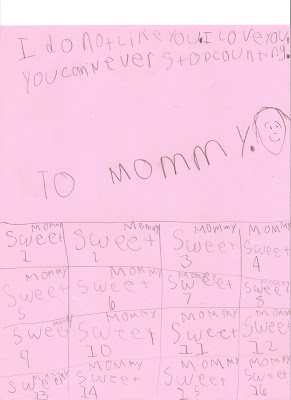 I do not Like You. I Love You.
You can Never Stop counting.
TO Mommy.
Mommy Mommy Mommy Mommy
Sweet Sweet Sweet Sweet
1 1 3 4
Mommy Mommy Mommy Mommy
Sweet Sweet Sweet Sweet
5 6 7 8
Mommy Mommy Mommy Mommy
Sweet Sweet Sweet Sweet
9 10 11 12
Mommy Mommy Mommy Mommy
Sweet Sweet Sweet Sweet
13 14 15 16